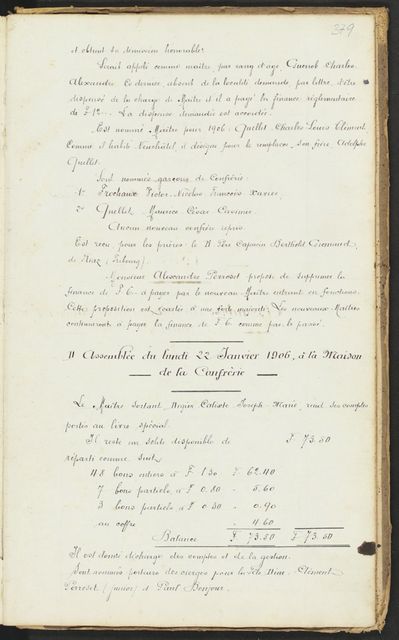 379
et obtient sa démission honorable.
Serait appelé comme maître par rang d'âge, Guenot Charles
Alexandre. Ce dernier, absent de la localité demande, par lettre, d'être
dispensé de la charge de Maître et il a payé la finance réglementaire
de F 12.-. La dispense demandée est accordée.
Est nommé Maître pour 1906. Quellet Charles Louis Clément.
Comme il habite Neuchâtel il désigne pour le remplacer, son frère, Adolphe
Quellet.
Sont nommés garçons de Confrérie:
1° Frochaux Victor Nicolas François Xavier,
2° Quellet Maurice César Casimir.
Aucun nouveau confrère repris.
Est reçu pour les prières le R Père Capucin Berthold
de Riaz (Fribourg).
Monsieur Alexandre Perroset propose de supprimer la
finance de F 6.- à payer par le nouveau Maître entrant en fonctions.
Cette proposition est écartée à une forte majorité. Les nouveaux Maîtres
continueront à payer la finance de F 6. comme par le passé.
II Assemblée du lundi 22 Janvier 1906, à la Maison
de la Confrérie
Le Maître sortant, Calixte Joseph Marie, rend ses comptes
portés au livre spécial.
Il reste un solde disponible de F 73.50
réparti comme suit:
48 bons entiers à F 1.30 F 62.40
7 bons partiels à F 0.80 - 5.60
3 bons partiels à F 0.30 - 0.90
au coffre - 4.60
Balance F 73.50 F 73.50
Il est donné décharge des comptes et de la gestion.
Sont nommés porteurs des cierges pour la Fête Dieu: Clément
Perroset (junior) et Paul Bonjour.